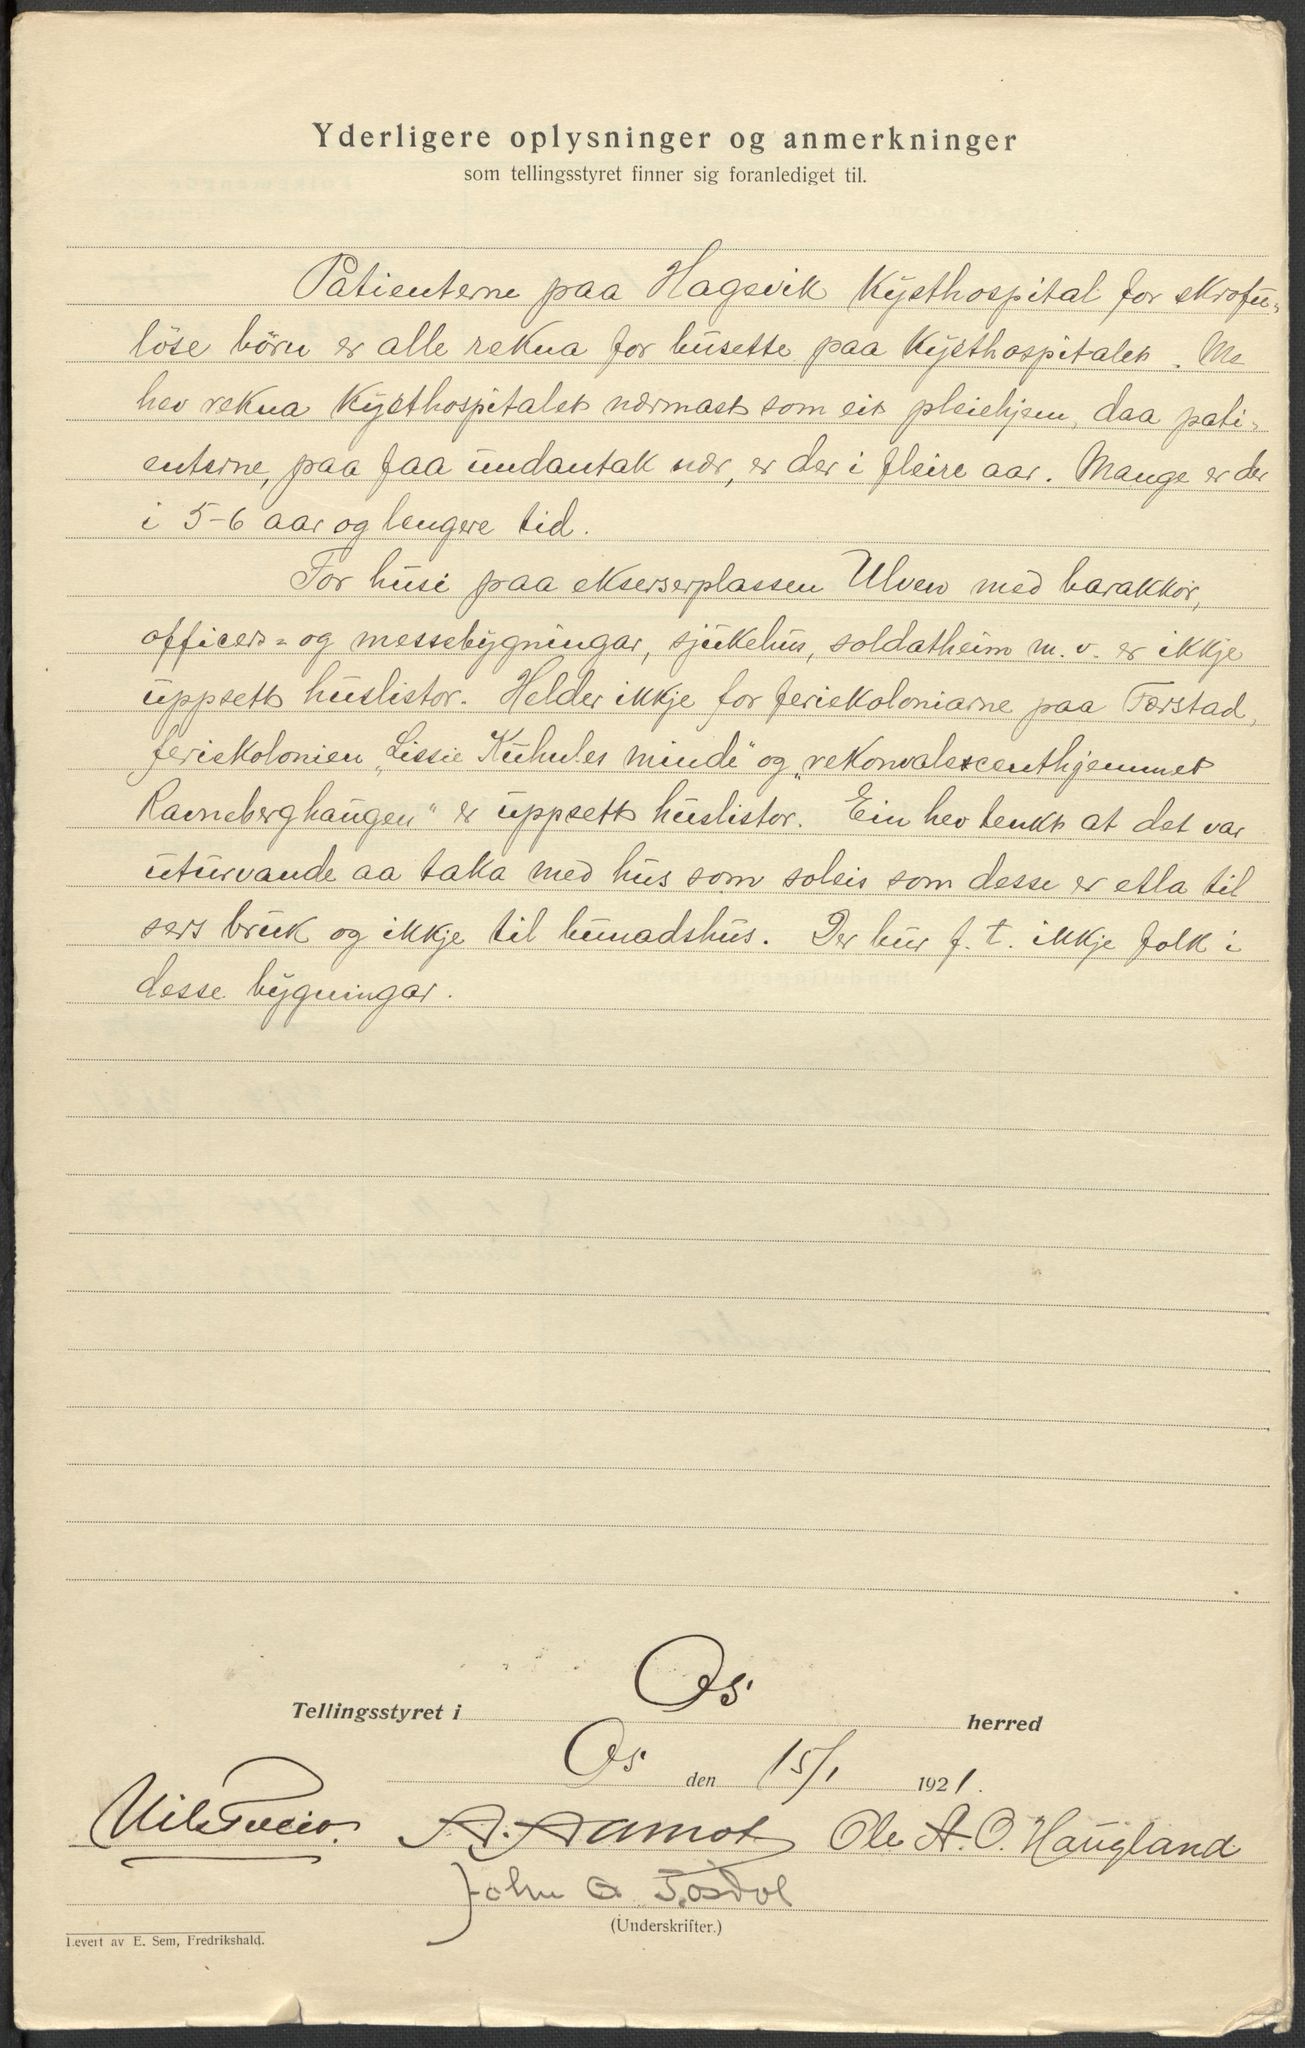 Yderligere oplysninger og anmerkninger
som tellingsstyret finner sig foranlediget til.
Patienterne paa Hagevik Kysthospital for skrofu-
löse börn er alle rekna for busette paa Kysthospitalet. Me
hev rekna Kysthospitalet nærmast som eit pleiehjem, daa pati-
enterne, paa faa undantak nær, er der i fleire aar. Mange er der
i 5-6 aar og lengere tid.
For husi paa ekserserplassen Ulven med barakkor,
officers- og messebygningar, sjukehus, soldatheim m. v. er ikkje
uppsett huslistor. Helder ikkje for feriekoloniarne paa Tørstad,
feriekolonien „Lissie Kuhnles minde" og „rekonvalescenthjemmet
Ravneberghaugen" er uppsett huslistor. Ein hev tenkt at det var
uturvande aa taka med hus som soleis som desse er etla til
sers bruk og ikkje til bunadshus. Der bur f. t. ikkje folk i
desse bygningar.
Tellingsstyret i Os herred
Os den 15/1 1921.
Nils A. Aamot Ole A. O. Haugland
John
(Underskrifter.)
Levert av E. Sem, Fredrikshald.